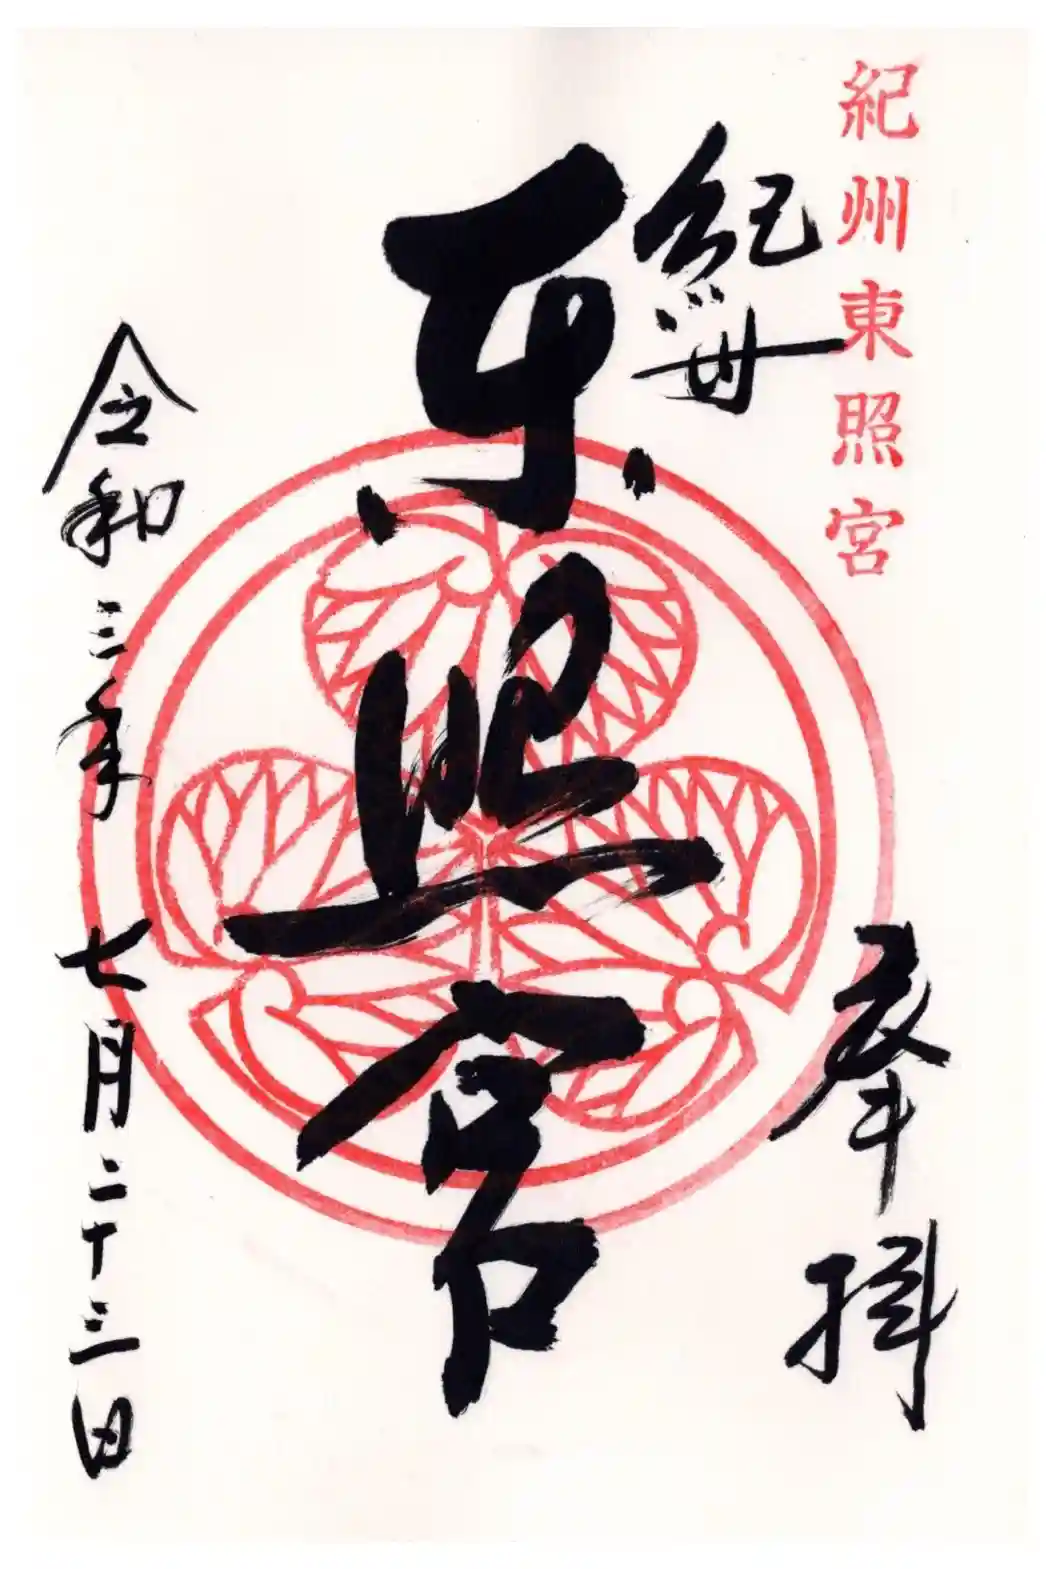 紀州東照宮
紀州
奉拝
東照宮
令和三年七月二十三日